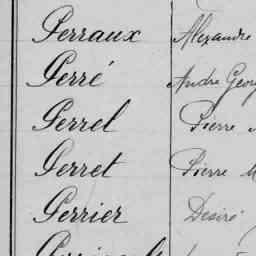 Perraux Alexandre
Perré André Georg
Perrel Pierre
Perret Pierre M
Perrier Désiré